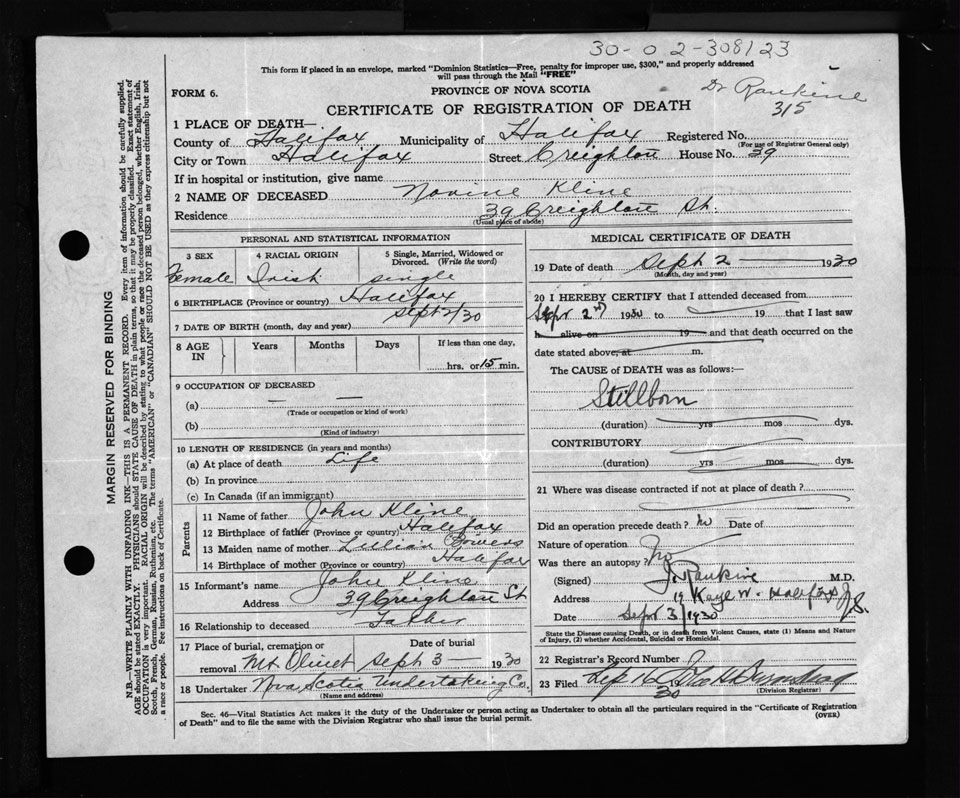 30-02-308123
This form if placed in an envelope, marked "Dominion Statistics—Free, penalty for improper use, $300," and properly addressed
will pass through the Mail "FREE"
Dr Rankine
315
FORM 6.
PROVINCE OF NOVA SCOTIA
CERTIFICATE OF REGISTRATION OF DEATH
1 PLACE OF DEATH—
County of Halifax Municipality of Halifax Registered No.
(For use of Registrar General only)
City or Town Halifax Street Creighton House No. 39
If in hospital or institution, give name
2 NAME OF DECEASED Norine Kline
Residence 39 Creighton St.
(Usual place of abode)
PERSONAL AND STATISTICAL INFORMATION
3 SEX 4 RACIAL ORIGIN 5 Single, Married, Widowed or
Divorced. (Write the word)
Female Irish single
6 BIRTHPLACE (Province or country) Halifax
7 DATE OF BIRTH (month, day and year) Sept 2/30
8 AGE IN Years Months Days If less than one day,
hrs. or 15 min.
9 OCCUPATION OF DECEASED
(a) — —
(Trade or occupation or kind of work)
(b)
(Kind of industry)
10 LENGTH OF RESIDENCE (in years and months)
(a) At place of death Life
(b) In province
(c) In Canada (if an immigrant)
Parents
11 Name of father John Kline
12 Birthplace of father (Province or country) Halifax
13 Maiden name of mother Lillian Bowers
14 Birthplace of mother (Province or country) Halifax
15 Informant's name John Kline
Address 39 Creighton St
16 Relationship to deceased Father
17 Place of burial, cremation or Date of burial
removal Mt Olivet Sept 3 — 1930
18 Undertaker Nova Scotia Undertaking Co.
(Name and address)
MEDICAL CERTIFICATE OF DEATH
19 Date of death Sept 2 1930
(Month, day and year)
20 I HEREBY CERTIFY that I attended deceased from
Sept 2nd 1930 to 19 that I last saw
h alive on 19 and that death occurred on the
date stated above, at m.
The CAUSE of DEATH was as follows:—
Stillborn
(duration) yrs mos dys.
CONTRIBUTORY
(duration) yrs mos dys.
21 Where was disease contracted if not at place of death?
Did an operation precede death? No Date of
Nature of operation
Was there an autopsy? No
(Signed) Rankine M.D.
Address 19 Kaye W. Halifax
Date Sept 3/1930
State the Disease causing Death, or in death from Violent Causes, state (1) Means and Nature
of Injury, (2) whether Accidental, Suicidal or Homicidal.
22 Registrar's Record Number
23 Filed 30
(Division Registrar)
Sec. 46—Vital Statistics Act makes it the duty of the Undertaker or person acting as Undertaker to obtain all the particulars required in the "Certificate of Registration
of Death" and to file the same with the Division Registrar who shall issue the burial permit.
(OVER)
MARGIN RESERVED FOR BINDING
N.B.—WRITE PLAINLY WITH UNFADING INK—THIS IS A PERMANENT RECORD. Every item of information should be carefully supplied.
AGE should be stated EXACTLY. PHYSICIANS should STATE CAUSE OF DEATH in plain terms, so that it may be properly classified. Exact statement of
OCCUPATION is very important. RACIAL ORIGIN will be described by stating to what people or race the deceased person belonged, whether English, Irish,
Scotch, French, German, Russian, Ruthenian, etc. The terms "AMERICAN" or "CANADIAN" SHOULD NOT BE USED as they express citizenship but not
a race or people. Fee instructions on back of Certificate.